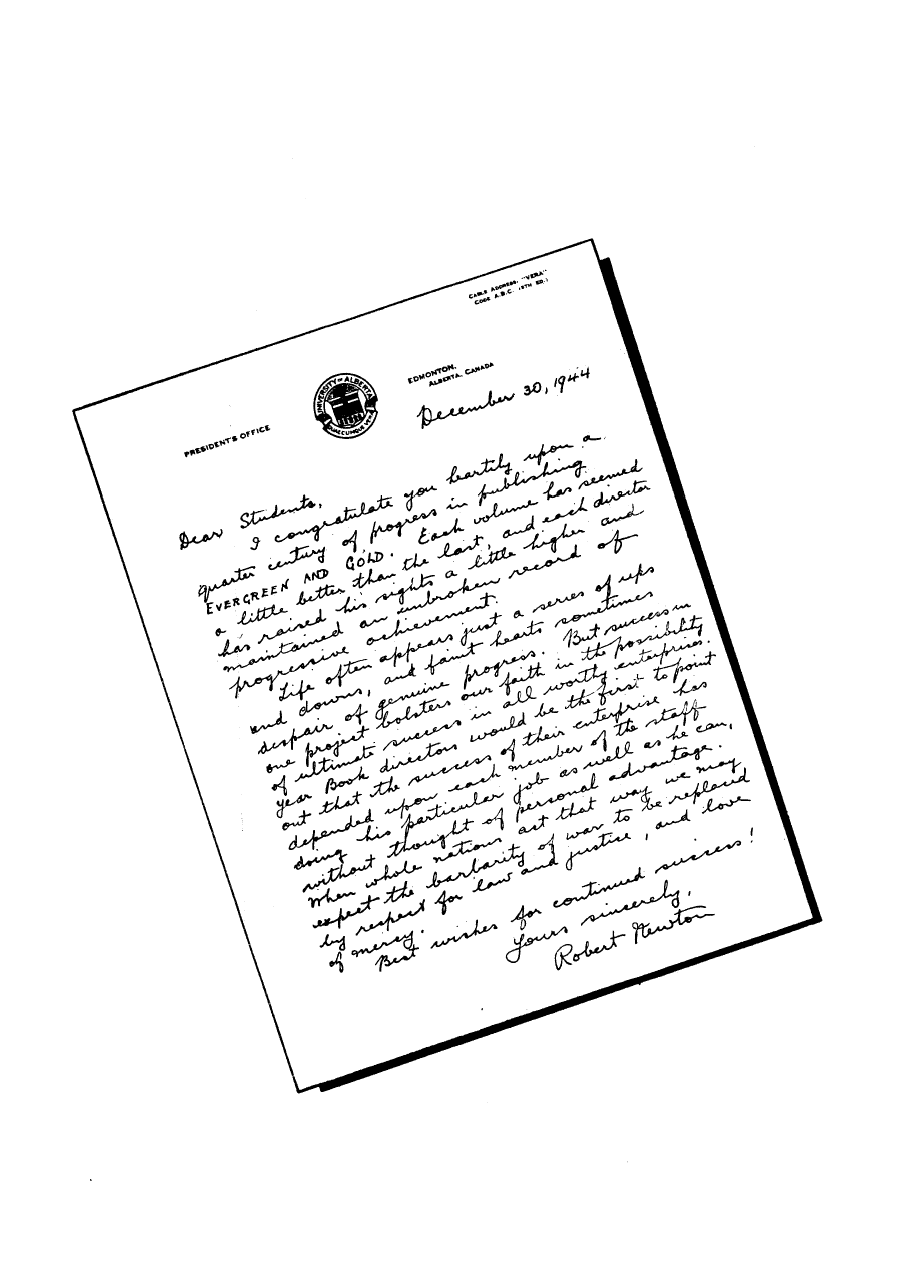 CABLE ADDRESS, "VERA"
CODE A.B.C. (5TH ED.)
EDMONTON,
ALBERTA, CANADA
UNIVERSITY OF ALBERTA
QUAECUMQUE VERA
PRESIDENT'S OFFICE
December 30, 1944
Dear Students,
I congratulate you heartily upon a
quarter century of progress in publishing
EVERGREEN AND GOLD. Each volume has seemed
a little better than the last, and each director
has raised his sights a little higher and
maintained an unbroken record of
progressive achievement.
Life often appears just a series of ups
and downs, and faint hearts sometimes
despair of genuine progress. But success in
one project bolsters our faith in the possibility
of ultimate success in all worthy enterprises.
Year Book directors would be the first to point
out that the success of their enterprise has
depended upon each member of the staff
doing his particular job as well as he can,
without thought of personal advantage.
When whole nations act that way we may
expect the barbarity of war to be replaced
by respect for law and justice, and love
of mercy.
Best wishes for continued success!
Yours sincerely,
Robert Newton